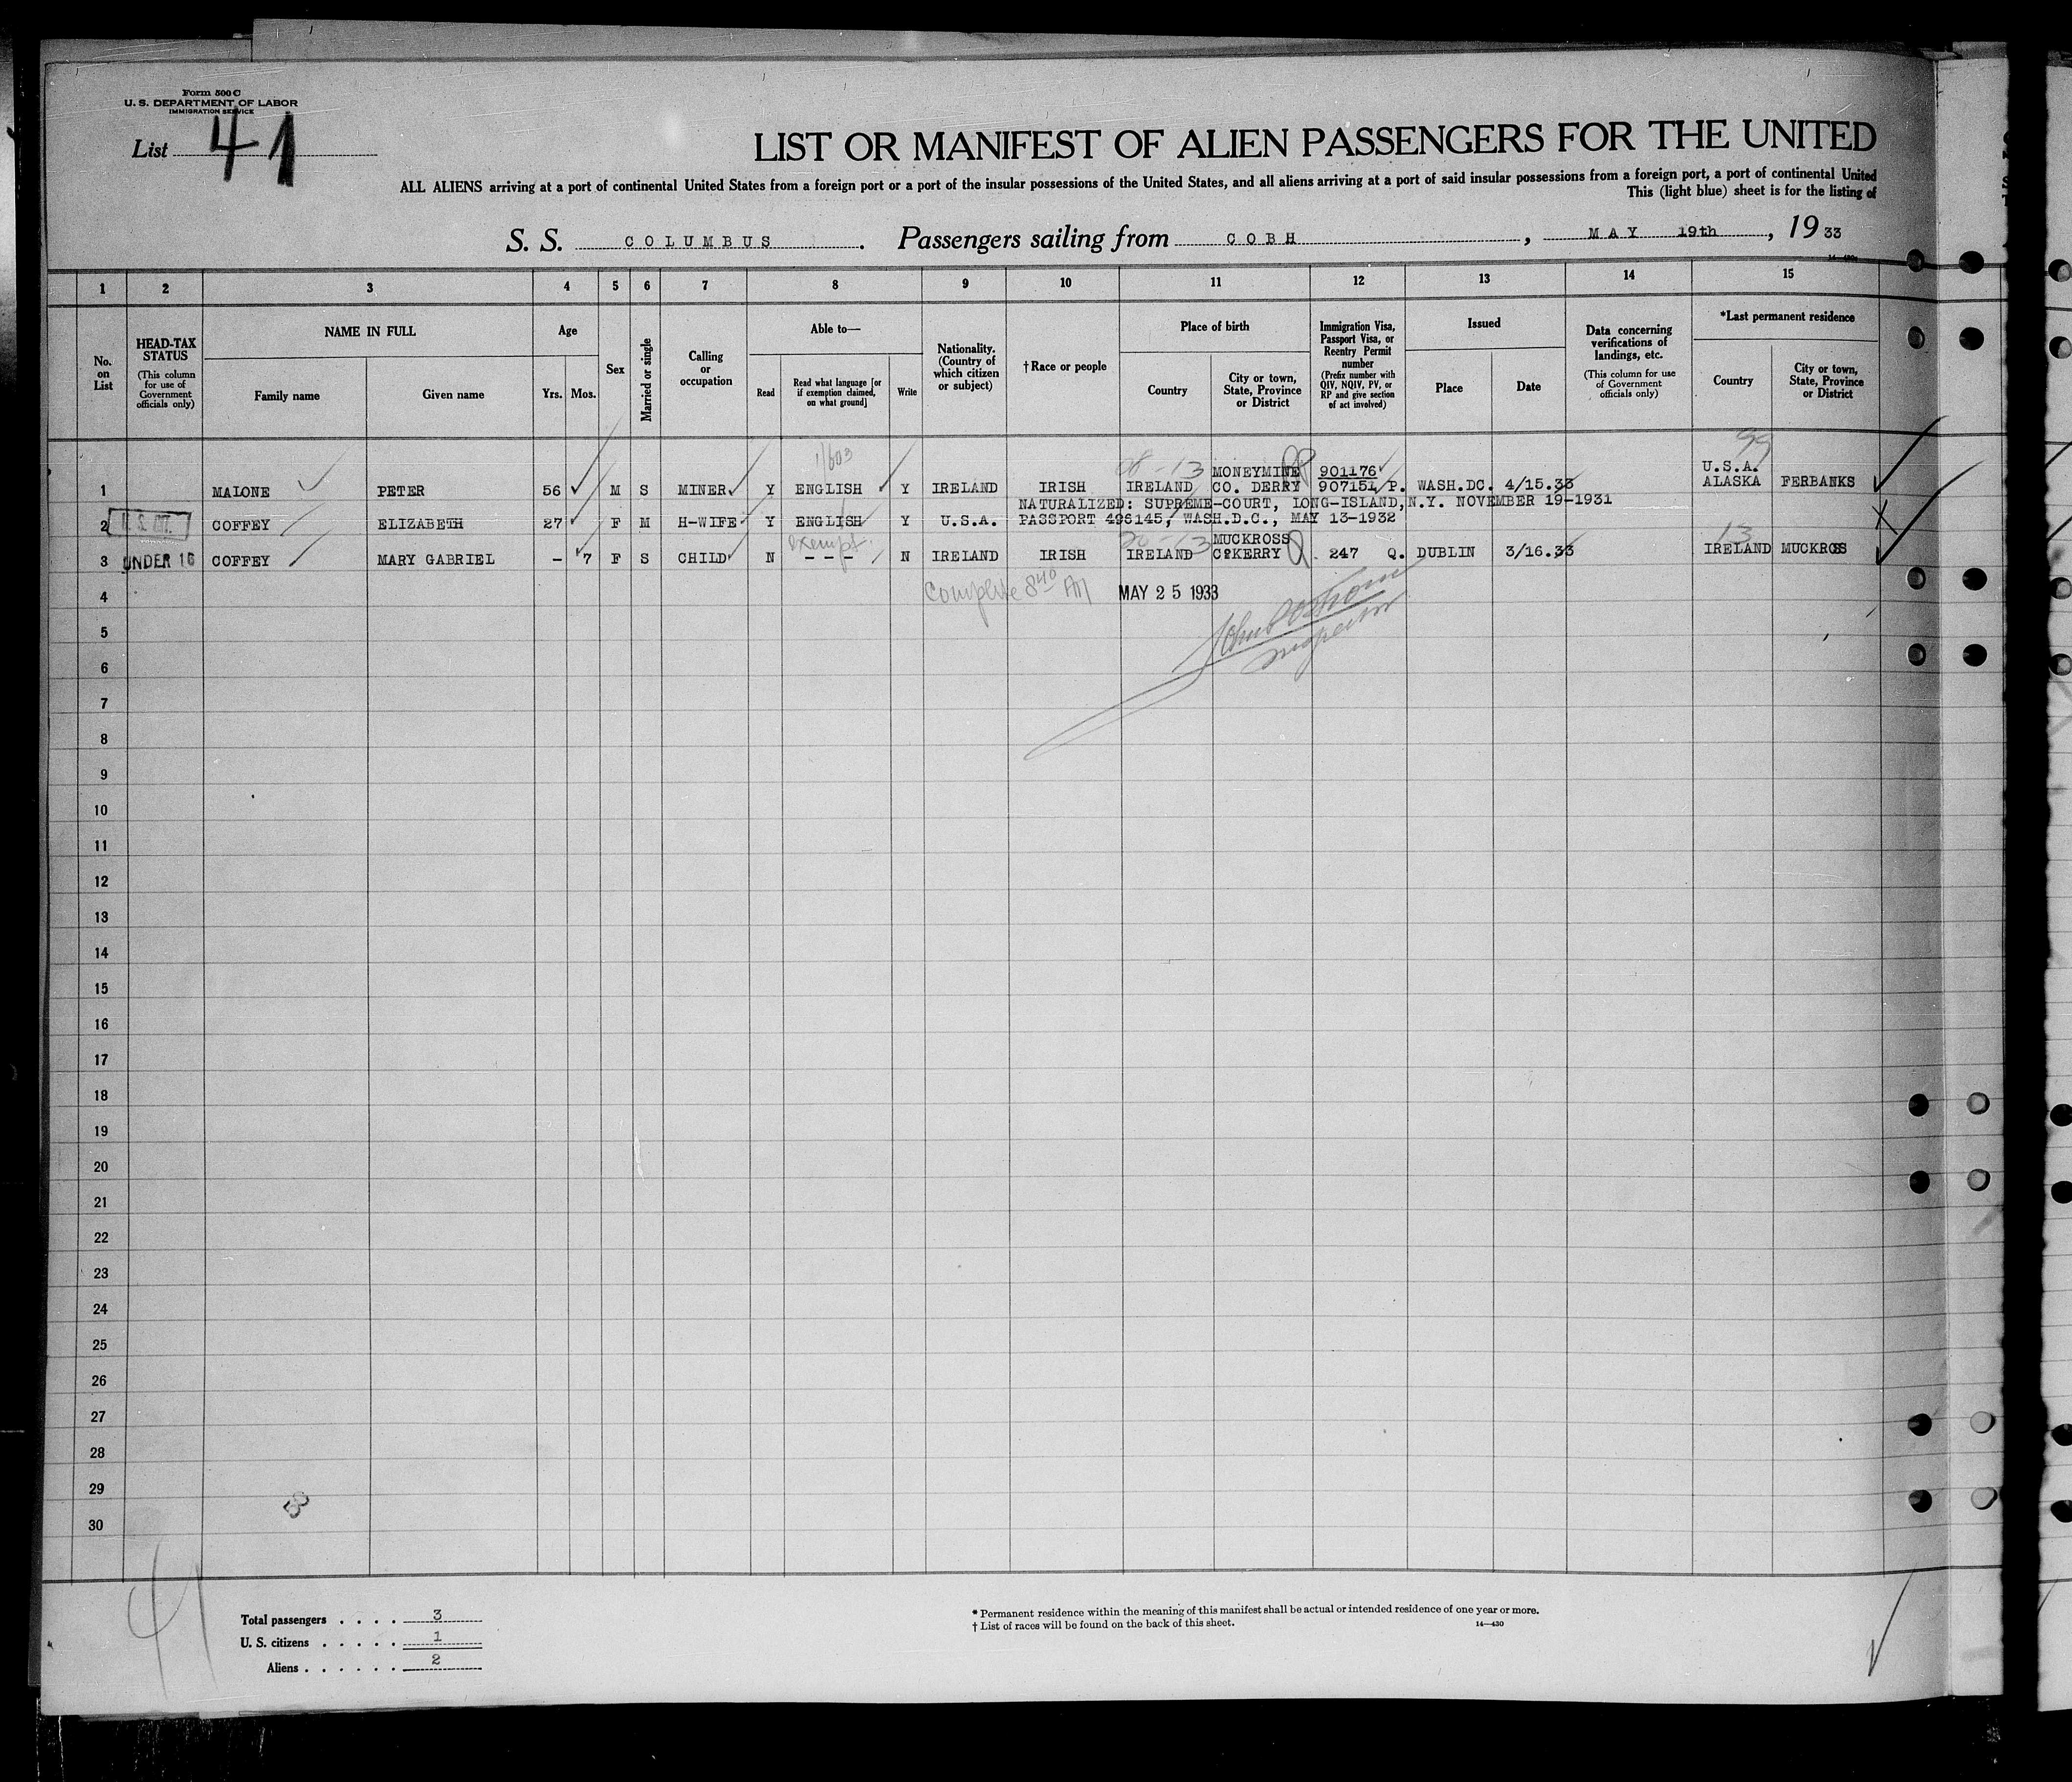 Form 500 C
U. S. DEPARTMENT OF LABOR
IMMIGRATION SERVICE
List 41
LIST OR MANIFEST OF ALIEN PASSENGERS FOR THE UNITED
ALL ALIENS arriving at a port of continental United States from a foreign port or a port of the insular possessions of the United States, and all aliens arriving at a port of said insular possessions from a foreign port, a port of continental United
This (light blue) sheet is for the listing of
S. S. COLUMBUS. Passengers sailing from COBH, MAY 19th, 1933
14—430
1 2 3 4 5 6 7 8 9 10 11 12 13 14 15
No. on List
HEAD-TAX STATUS
(This column for use of Government officials only)
NAME IN FULL
Family name
Given name
Age
Yrs. Mos.
Sex
Married or single
Calling or occupation
Able to—
Read
Read what language [or if exemption claimed, on what ground]
Write
Nationality. (Country of which citizen or subject)
†Race or people
Place of birth
Country
City or town, State, Province or District
Immigration Visa, Passport Visa, or Reentry Permit number
(Prefix number with QIV, NQIV, PV, or RP and give section of act involved)
Issued
Place
Date
Data concerning verifications of landings, etc.
(This column for use of Government officials only)
*Last permanent residence
Country
City or town, State, Province or District
1/603
99
08-13 MONEYMINE 901176 U.S.A.
1 MALONE PETER 56 M S MINER Y ENGLISH Y IRELAND IRISH IRELAND CO. DERRY 907151 P. WASH.DC. 4/15.33 ALASKA FERBANKS
NATURALIZED: SUPREME-COURT, LONG-ISLAND, N.Y. NOVEMBER 19-1931
2 COFFEY ELIZABETH 27 F M H-WIFE Y ENGLISH Y U.S.A. PASSPORT 496145, WASH.D.C., MAY 13-1932
exempt MUCKROSS 13
3 UNDER 16 COFFEY MARY GABRIEL - 7 F S CHILD N - - - N IRELAND IRISH IRELAND CO KERRY 247 Q. DUBLIN 3/16.33 IRELAND MUCKROSS
4 Complete 8 40 AM MAY 25 1933
5
6 Inspector
7
8
9
10
11
12
13
14
15
16
17
18
19
20
21
22
23
24
25
26
27
28
29
30
41
Total passengers . . . . 3
U. S. citizens . . . . . 1
Aliens . . . . . . 2
* Permanent residence within the meaning of this manifest shall be actual or intended residence of one year or more.
† List of races will be found on the back of this sheet. 14—430